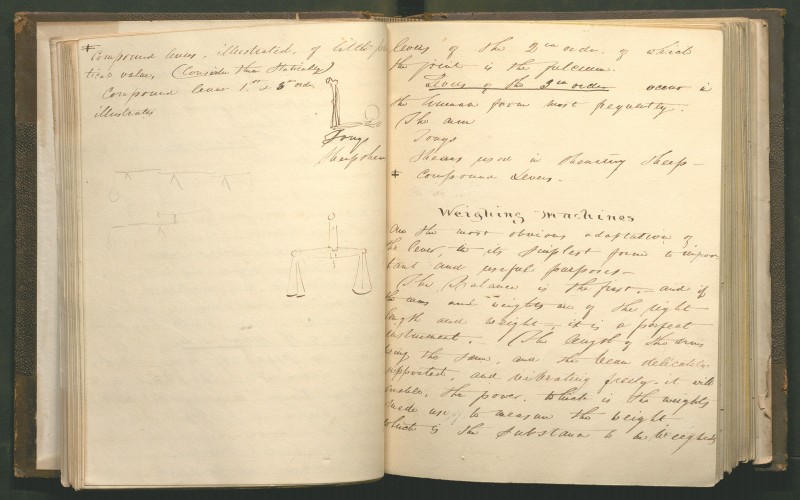 ‡ Compound levers, illustrated, of little prac
tical value, (Consider them Statically)
Compound lever 1st & 3d order
illustrated
Tongs
Sheep shears
levers of the 2nd order of which
the joint is the fulcrum.
Levers of the 3rd order occur in
the human form most frequently.
The arm
Tongs
Shears used in Shearing Sheep –
‡ Compound Levers.
Weighing Machines
Are the most obvious adaptation of
the lever, in its simplest form to impor
tant and useful purposes –
The Balance is the first, and if
the arms and weights are of the right
length and weight, it is a perfect
instrument. The length of the arms
being the same, and the beam delicately
supported, and vibrating freely, it will
enable, the power, which is the weights
made use, to measure the weight
which is the substance to be weighed